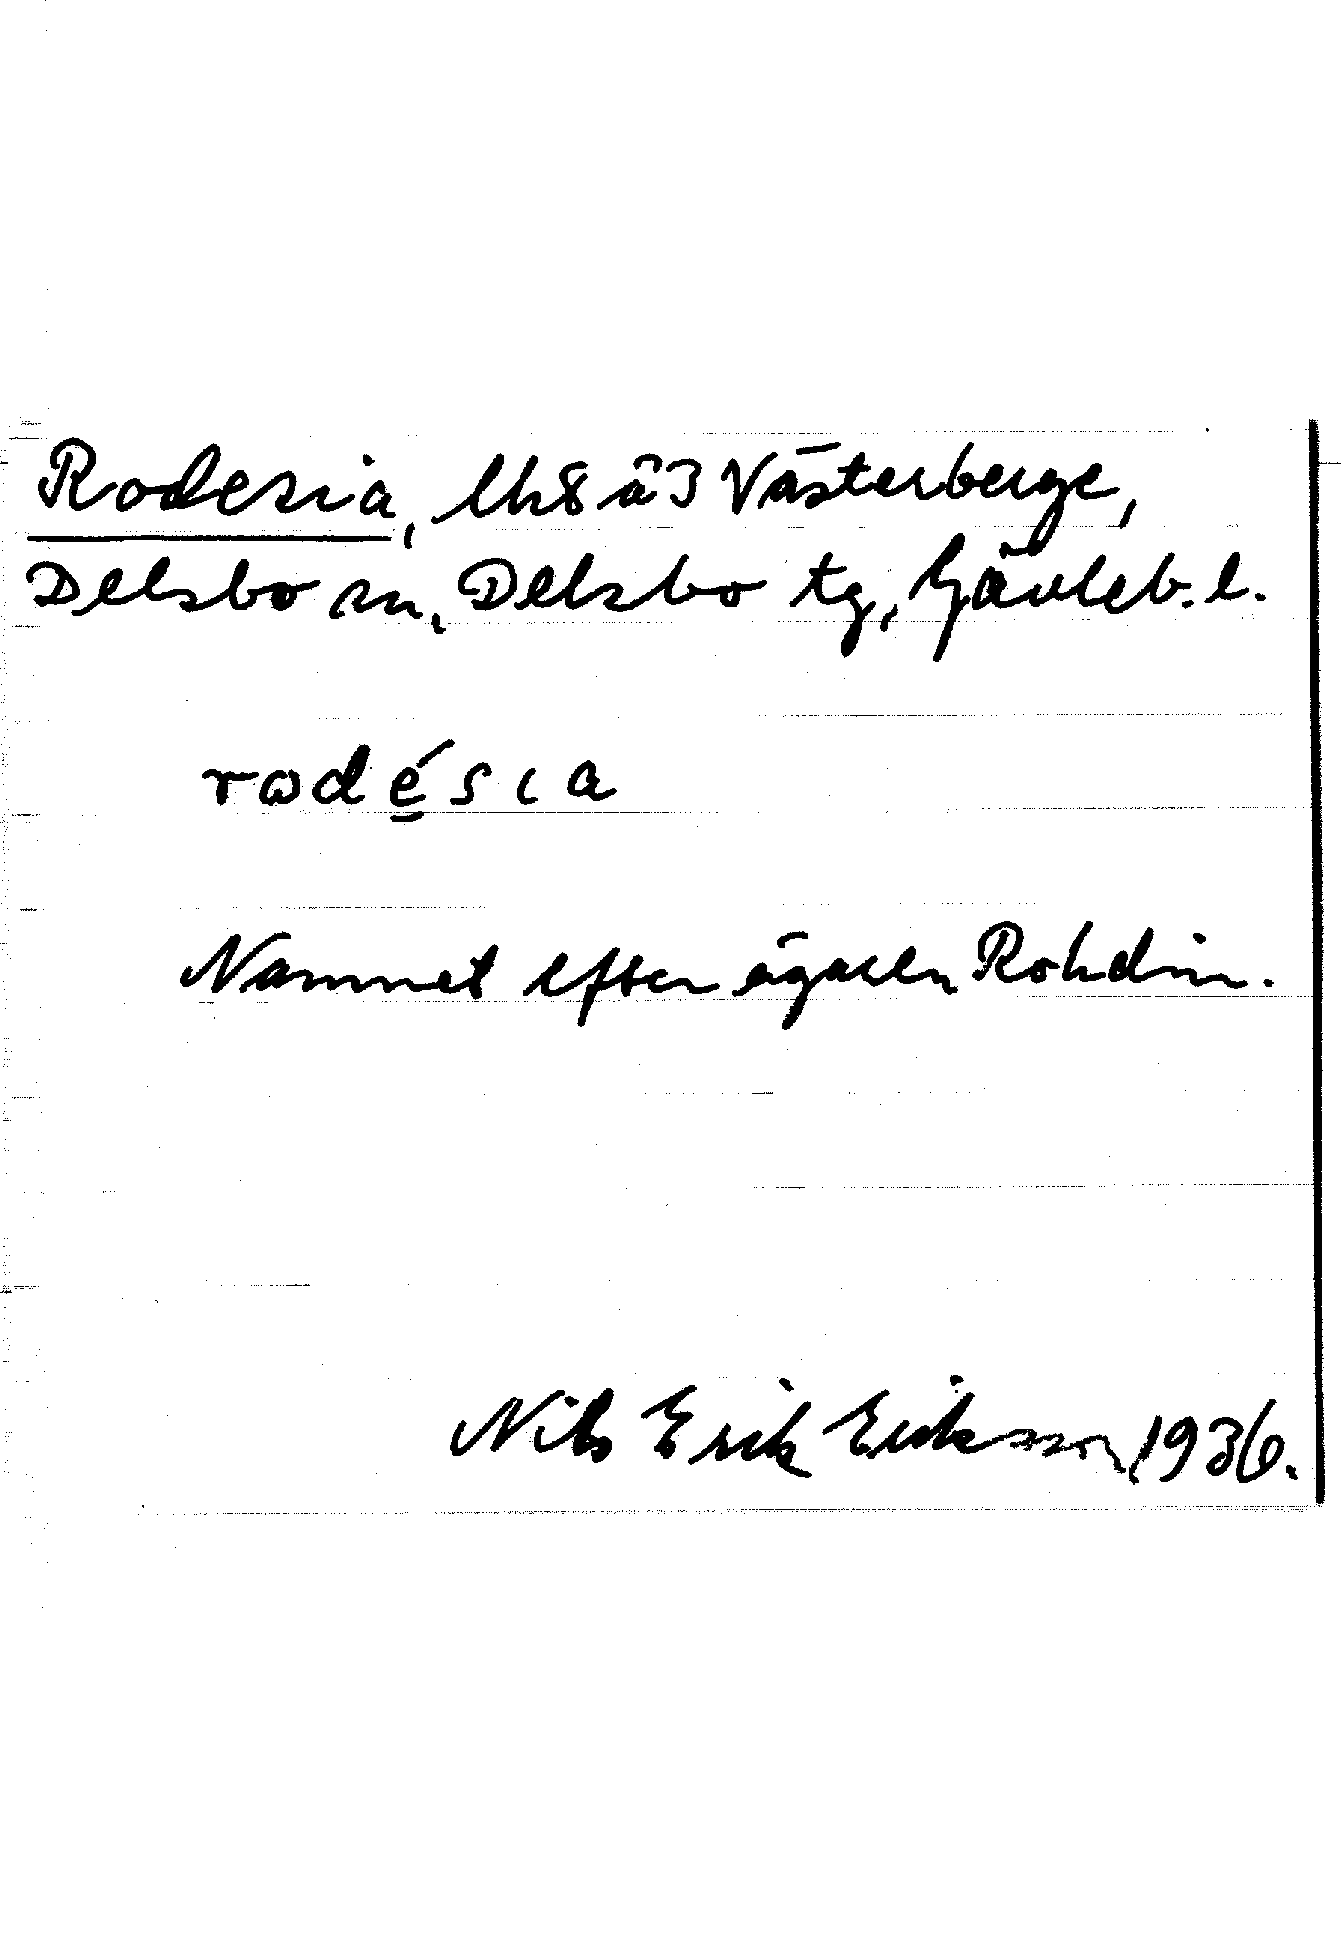 Rodesia, lhs å 3 Västerberge,
Delsbo sn, Delsbo tg, Gävleb. l.
rodésia
Namnet efter ägaren Rohdin.
Nils Erik Eriksson, 1936.